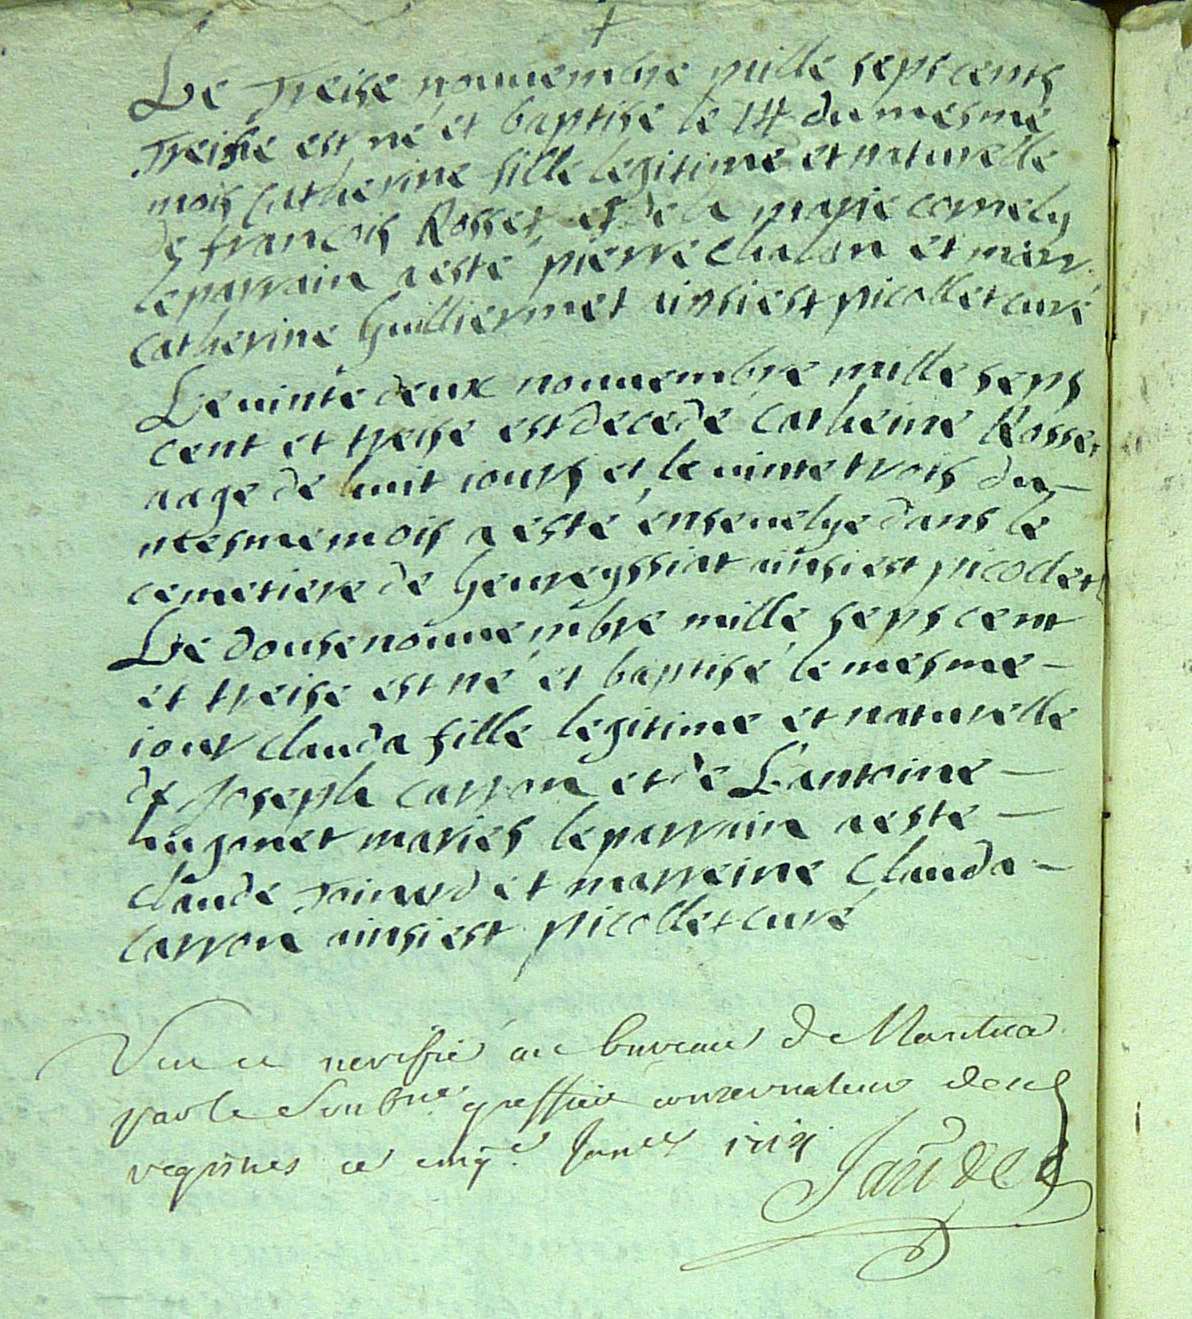 Le treise nouuembre mille sept cents
treise est né et baptisé le 14 du mesme
mois Catherine fille legitime et naturelle
de françois Rosset et de la marie cornely
le parrain a esté pierre chalon et marr.
catherine Guilliermet ainsi est picollet curé
Le uinte deux nouuembre mille sept
cent et treise est decedé catherine Rosset
aagé de huit iours et le uinte trois du
mesme mois a esté ensevelye dans le
cemetiere de Gevreyssiat ainsi est picollet
Le douse nouuembre mille sept cent
et treise est né et baptisé le mesme
iour clauda fille legitime et naturelle
de Joseph carron et de L'antoine
hugonet mariés le parrain a esté
claude et marreine clauda
carron ainsi est picollet curé
Veu et verifié au bureau de Nantua
par le Soubne greffier conservateur desd
registres ce cinqe Janer 1714